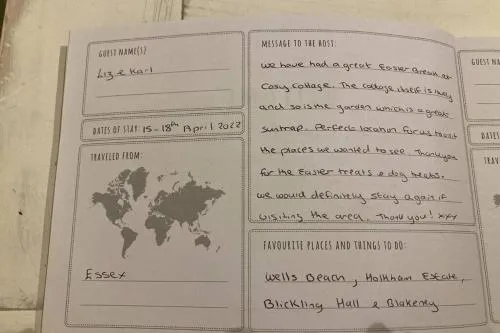 GUEST NAME(S)
Liz & Karl
DATES OF STAY: 15-18th April 2022
TRAVELED FROM:
Essex
MESSAGE TO THE HOST:
We have had a great Easter Break at
Cosy Cottage. The cottage itself is lovely
and so is the garden which is a great
suntrap. Perfect location for us to visit
the places we wanted to see. Thank you
for the Easter treats & dog treats.
We would definitely stay again if
visiting the area. Thank you! xxx
FAVOURITE PLACES AND THINGS TO DO:
Wells Beach, Holkham Estate,
Blickling Hall & Blakeney
GUEST NA
DATES
TRAV